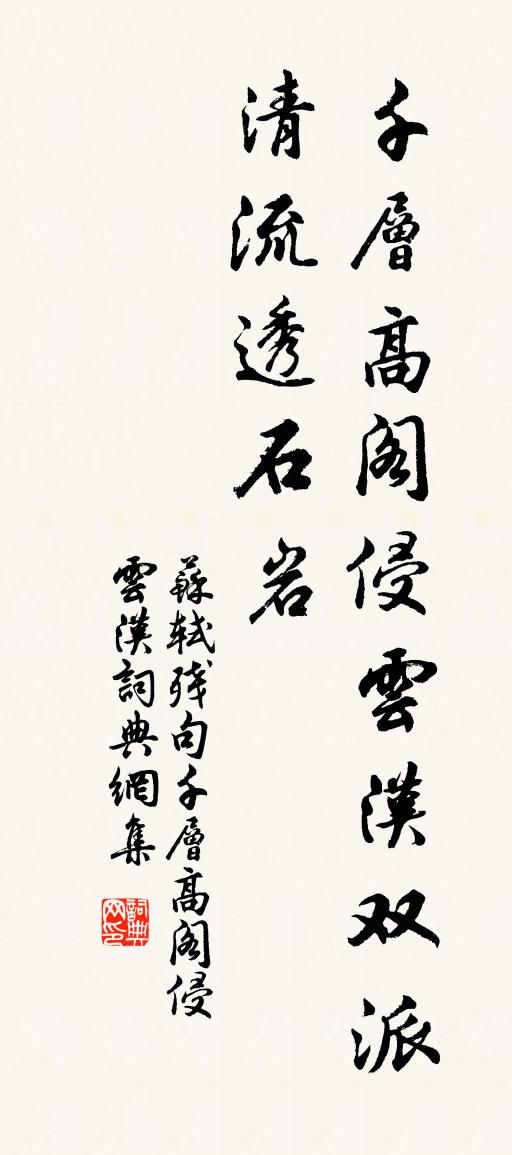 千層高阁侵雲漢双派
清流透石岩
蘇軾残句千層高阁侵
雲漢詞典網集
詞典网印